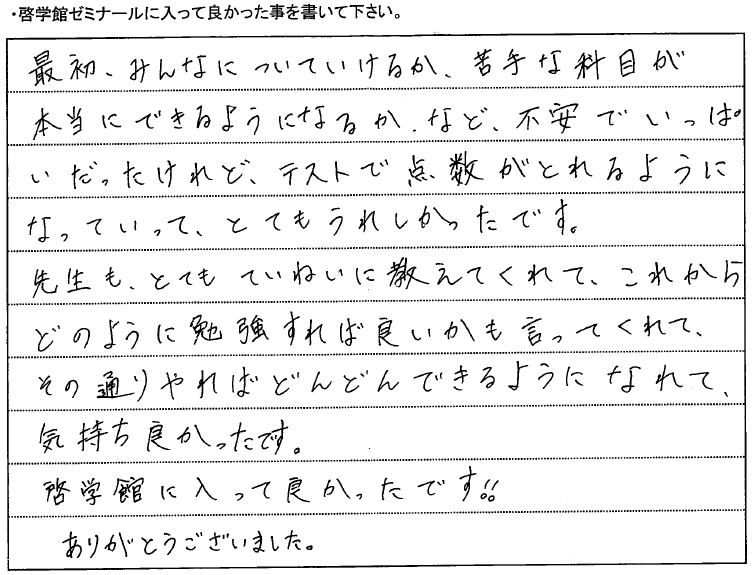 ・啓学館ゼミナールに入って良かった事を書いて下さい。
最初、みんなについていけるか、苦手な科目が
本当にできるようになるか、など、不安でいっぱ
いだったけれど、テストで点数がとれるように
なっていって、とてもうれしかったです。
先生も、とてもていねいに教えてくれて、これから
どのように勉強すれば良いかも言ってくれて、
その通りやればどんどんできるようになれて、
気持ち良かったです。
啓学館に入って良かったです!!
ありがとうございました。